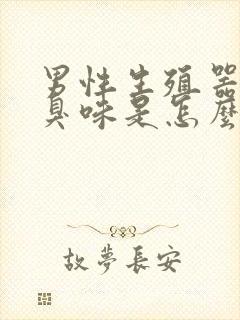 男性生殖器
臭味是怎麼
故夢長安